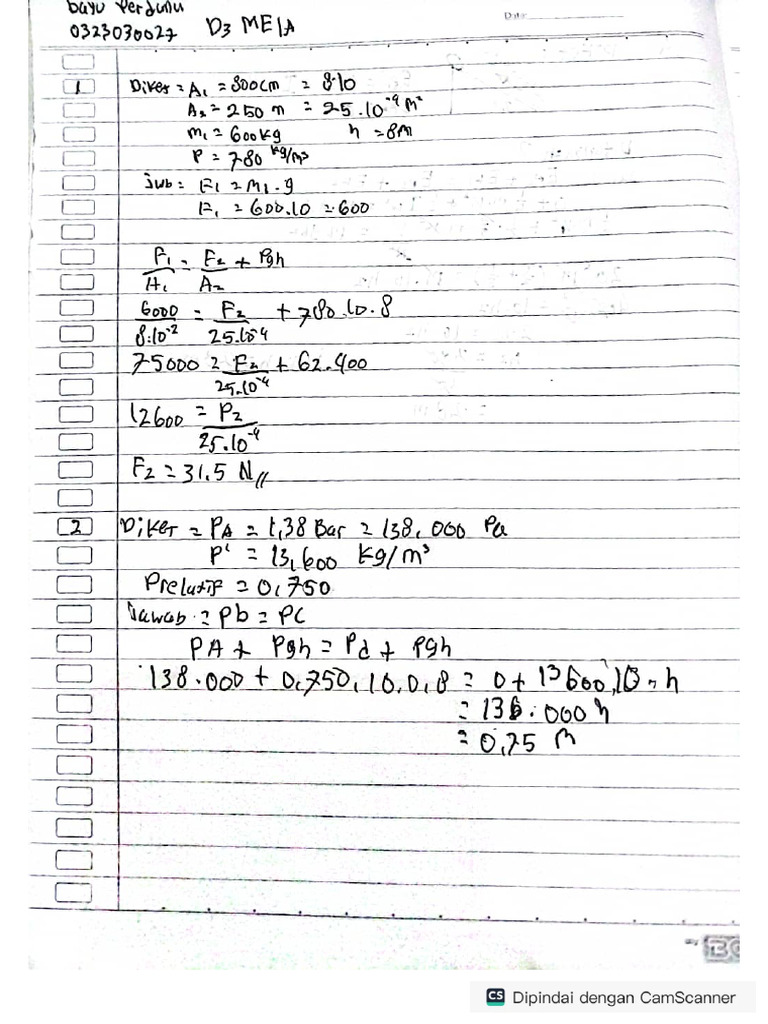 bayu Perdunu
0323030027 D3 ME1A
Date:
1 Diket = A₁ = 800cm = 8·10
A₂ = 250 m = 25.10⁻⁴ M²
m₁ = 600kg h = 8M
P = 780 kg/m³
Jwb = F₁ = M₁.g
F₁ = 600.10 = 600
F₁/A₁ = F₂/A₂ + Pgh
6000/8.10⁻² = F₂/25.10⁻⁴ + 780.10.8
75000 = F₂/25.10⁻⁴ + 62.400
12600 = P₂/25.10⁻⁴
F₂ = 31.5 N//
2 Diket = PA = 1,38 Bar = 138.000 Pa
P' = 13,600 kg/m³
Prelatif = 0,750
Jawab = Pb = PC
PA + Pgh = Pd + Pgh
138.000 + 0,750.10.0,8 = 0 + 13600.10.h
= 136.000 h
= 0,75 M
CS Dipindai dengan CamScanner